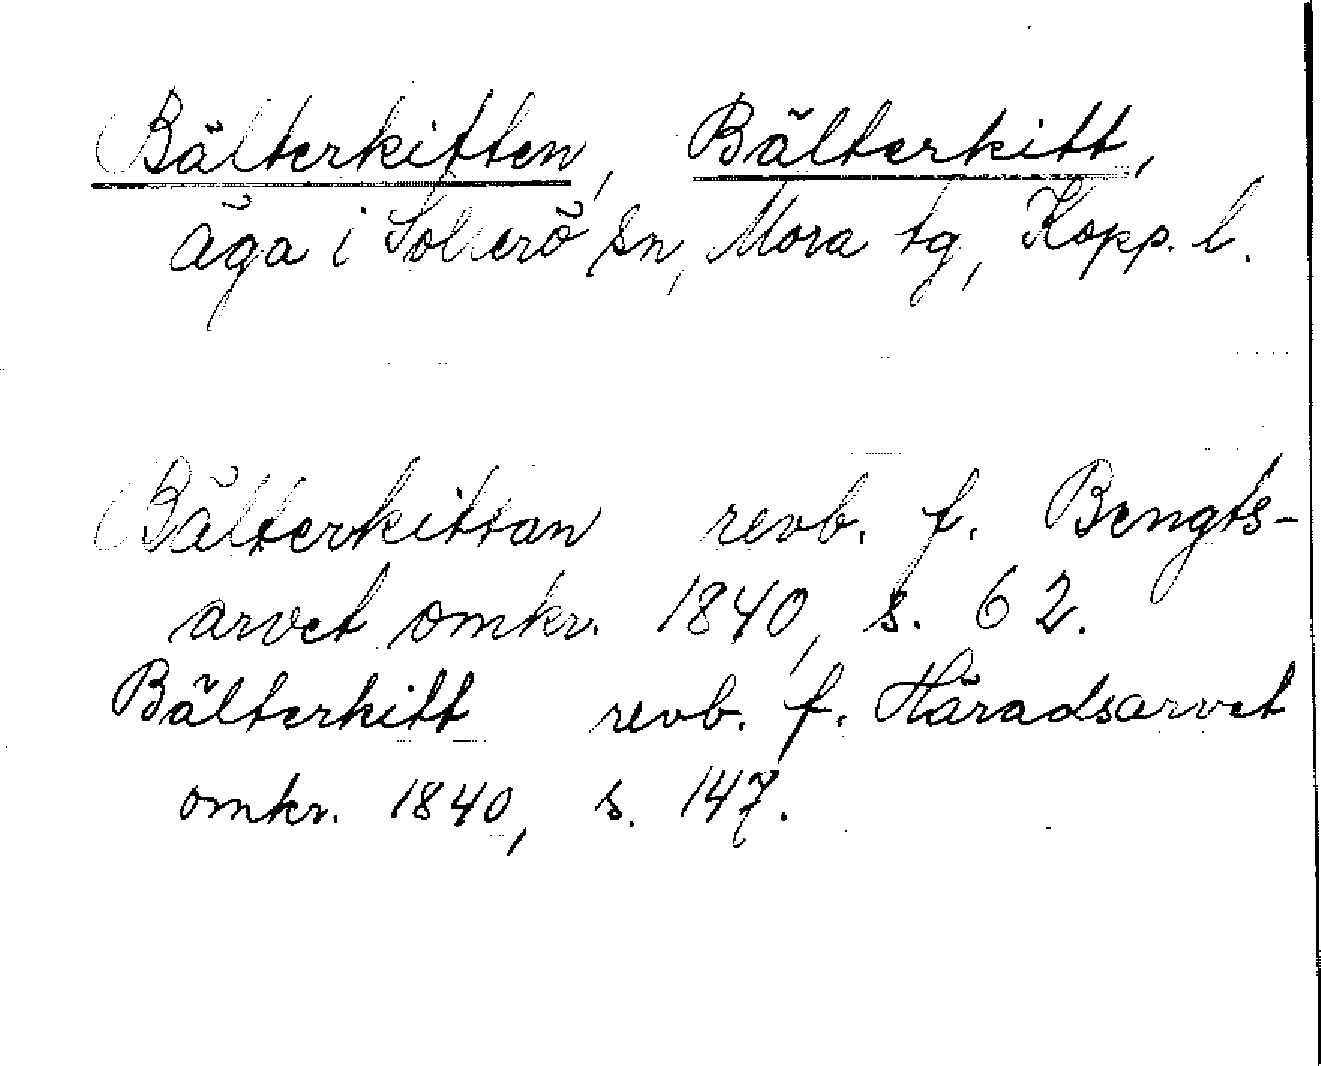 Bälterkitten, Bälterkitt,
äga i Sollerö sn, Mora tg, Kopp. l.
Bälterkittan revb. f. Bengts-
arvet omkr. 1840, s. 62.
Bälterkitt revb. f. Häradsarvet
omkr. 1840, s. 147.